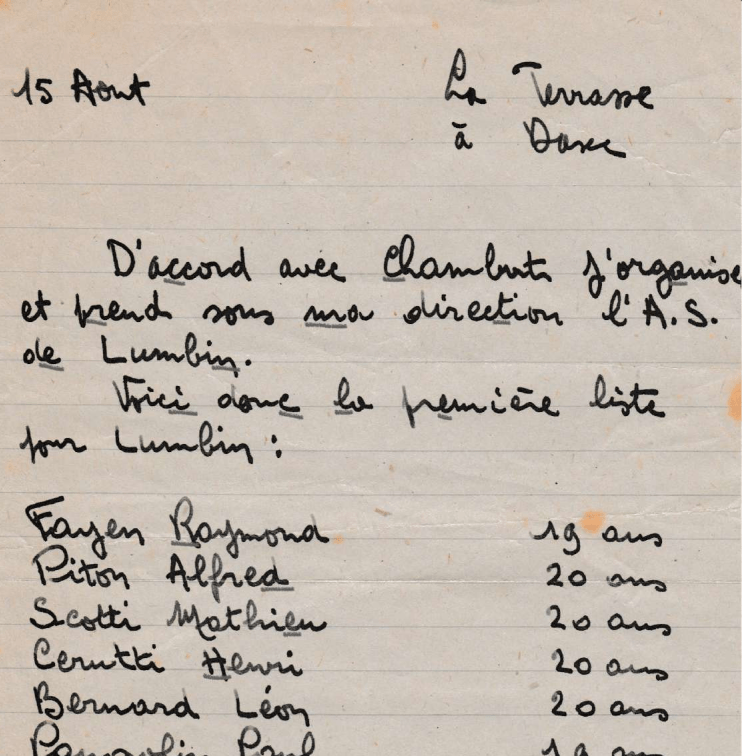 15 Aout
La Terrasse
à Daxe
D'accord avec Chambuts j'organise
et prends sous ma direction l'A.S.
de Lumbin.
Voici donc la première liste
pour Lumbin :
Fayen Raymond 19 ans
Piton Alfred 20 ans
Scotti Mathieu 20 ans
Cerutti Henri 20 ans
Bernard Léon 20 ans
Paul 19 ans